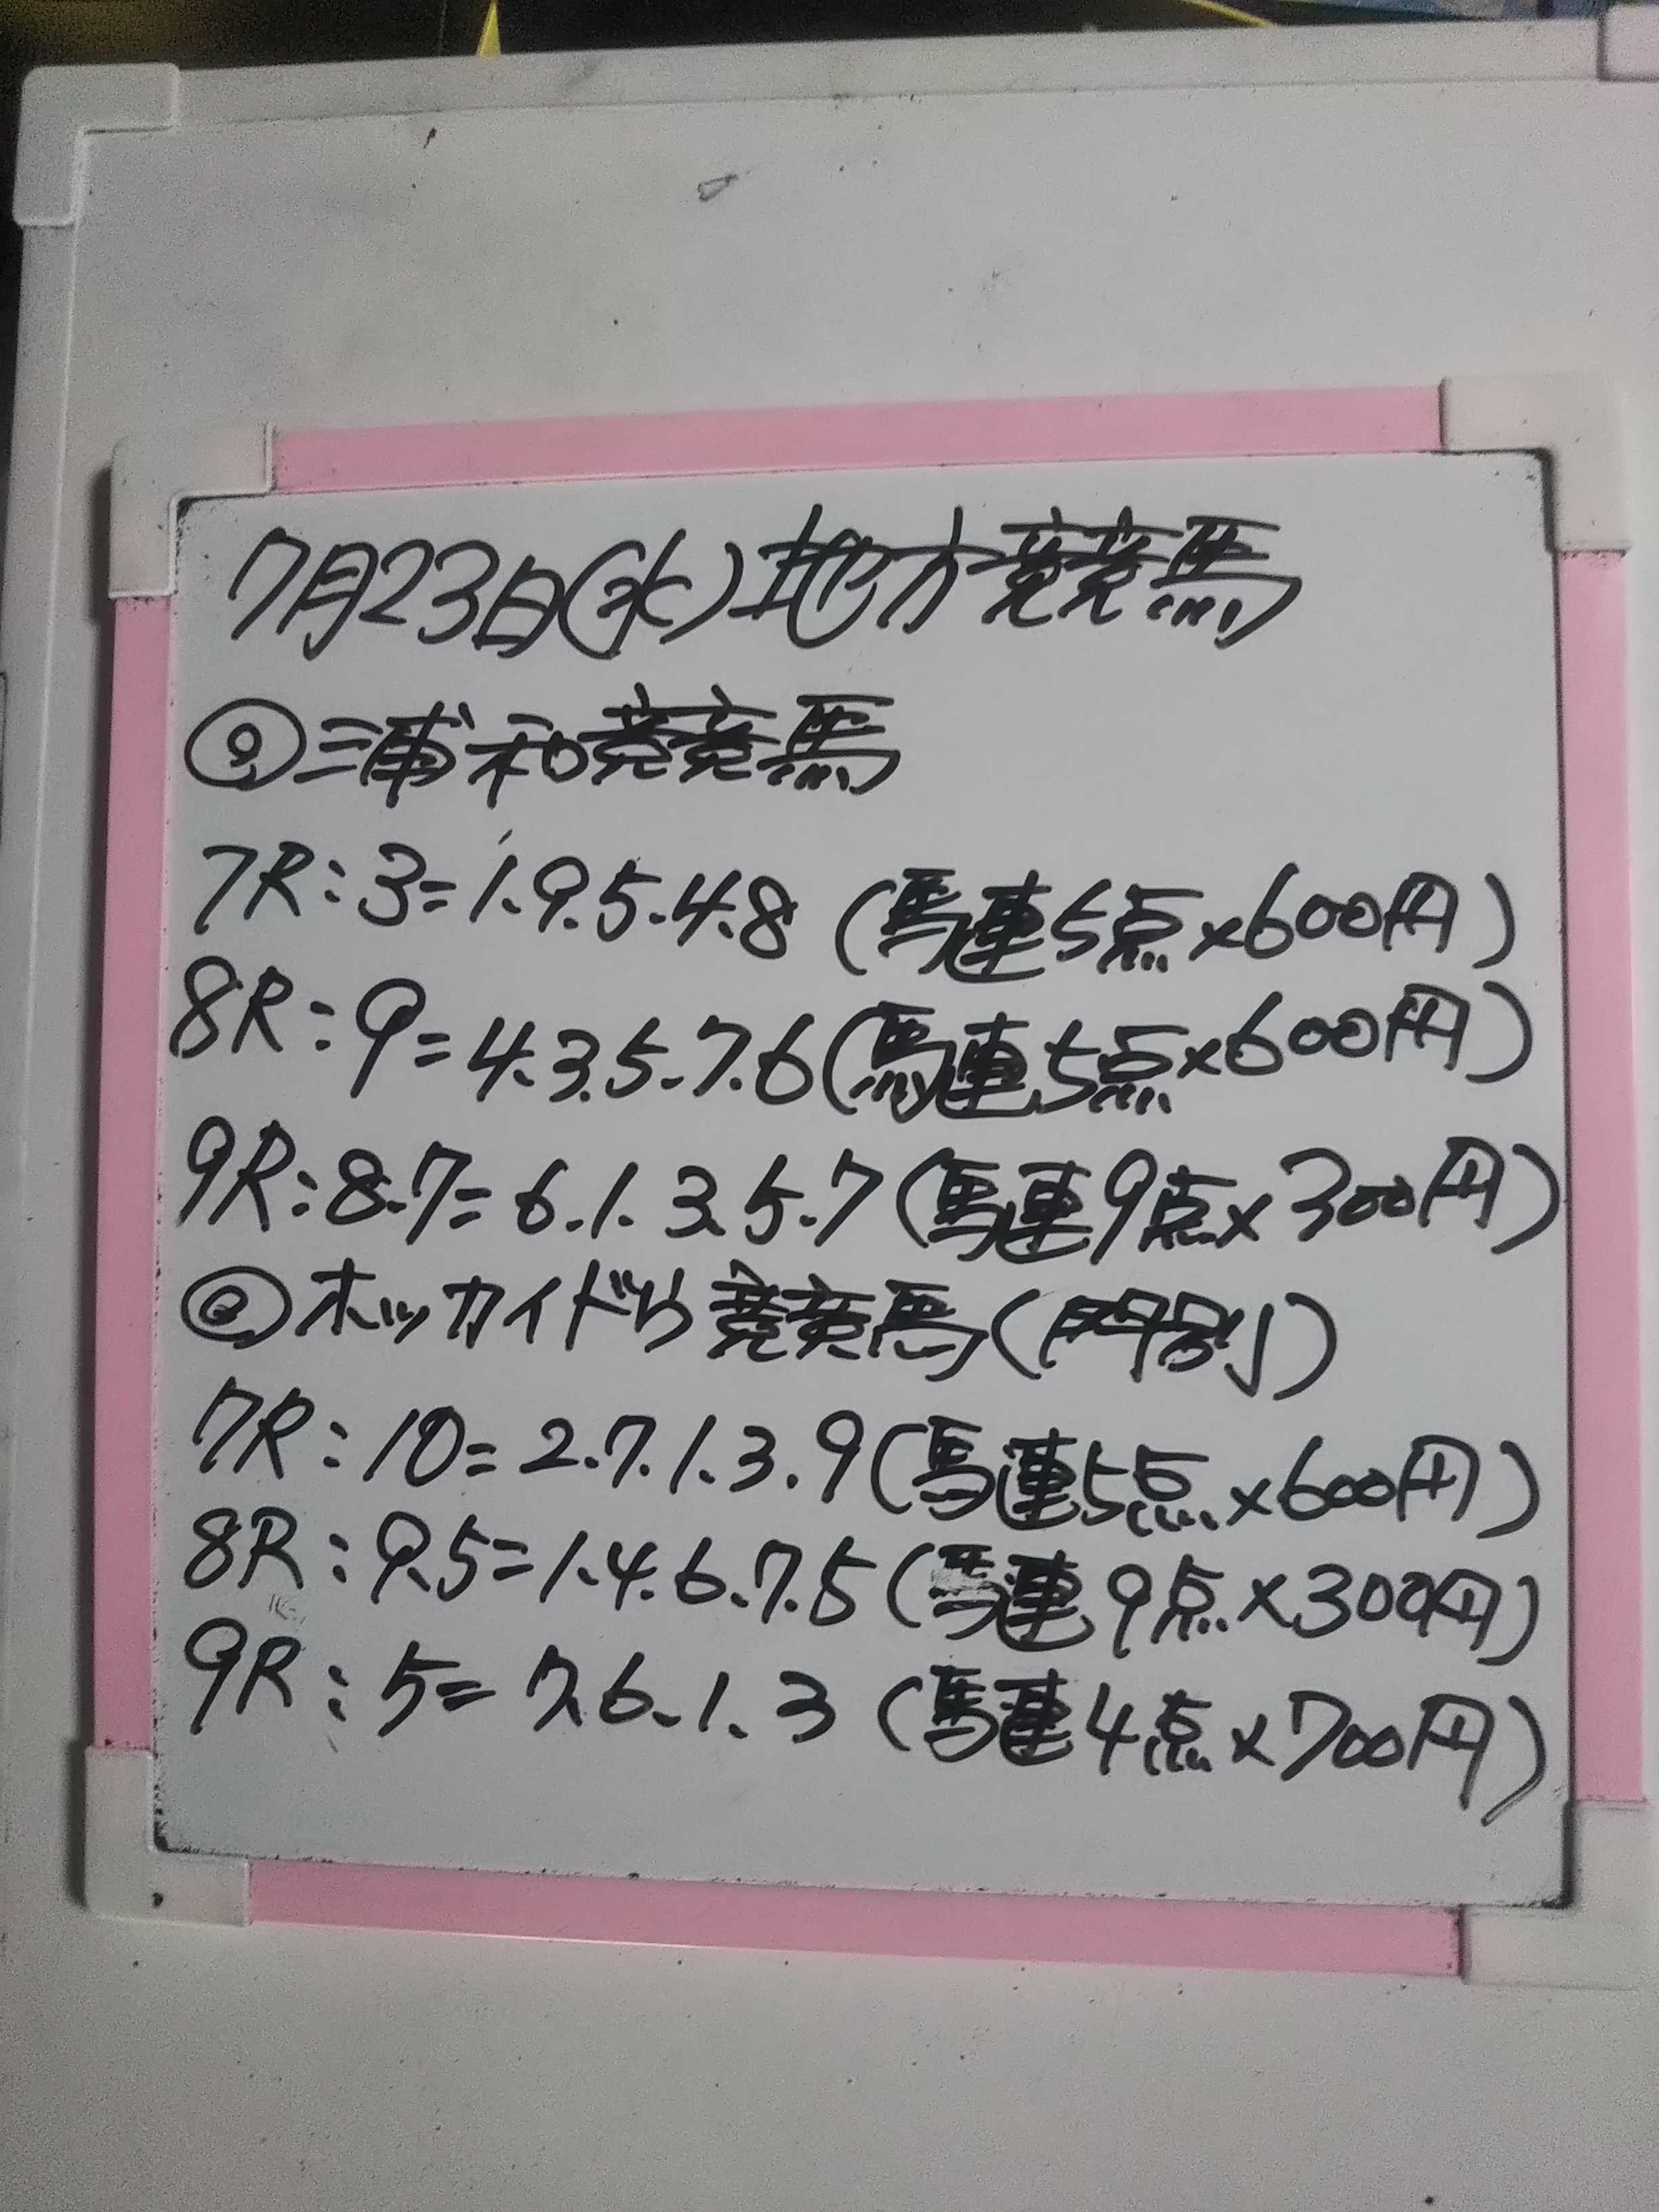 7月23日(水)地方競馬
◎浦和競馬
7R:3=1.9.5.4.8(馬連5点×600円)
8R:9=4.3.5.7.6(馬連5点×600円)
9R:8.7=6.1.3.5.7(馬連9点×300円)
◎ホッカイドウ競馬(門別)
7R:10=2.7.1.3.9(馬連5点×600円)
8R:9.5=1.4.6.7.5(馬連9点×300円)
9R:5=7.6.1.3(馬連4点×700円)